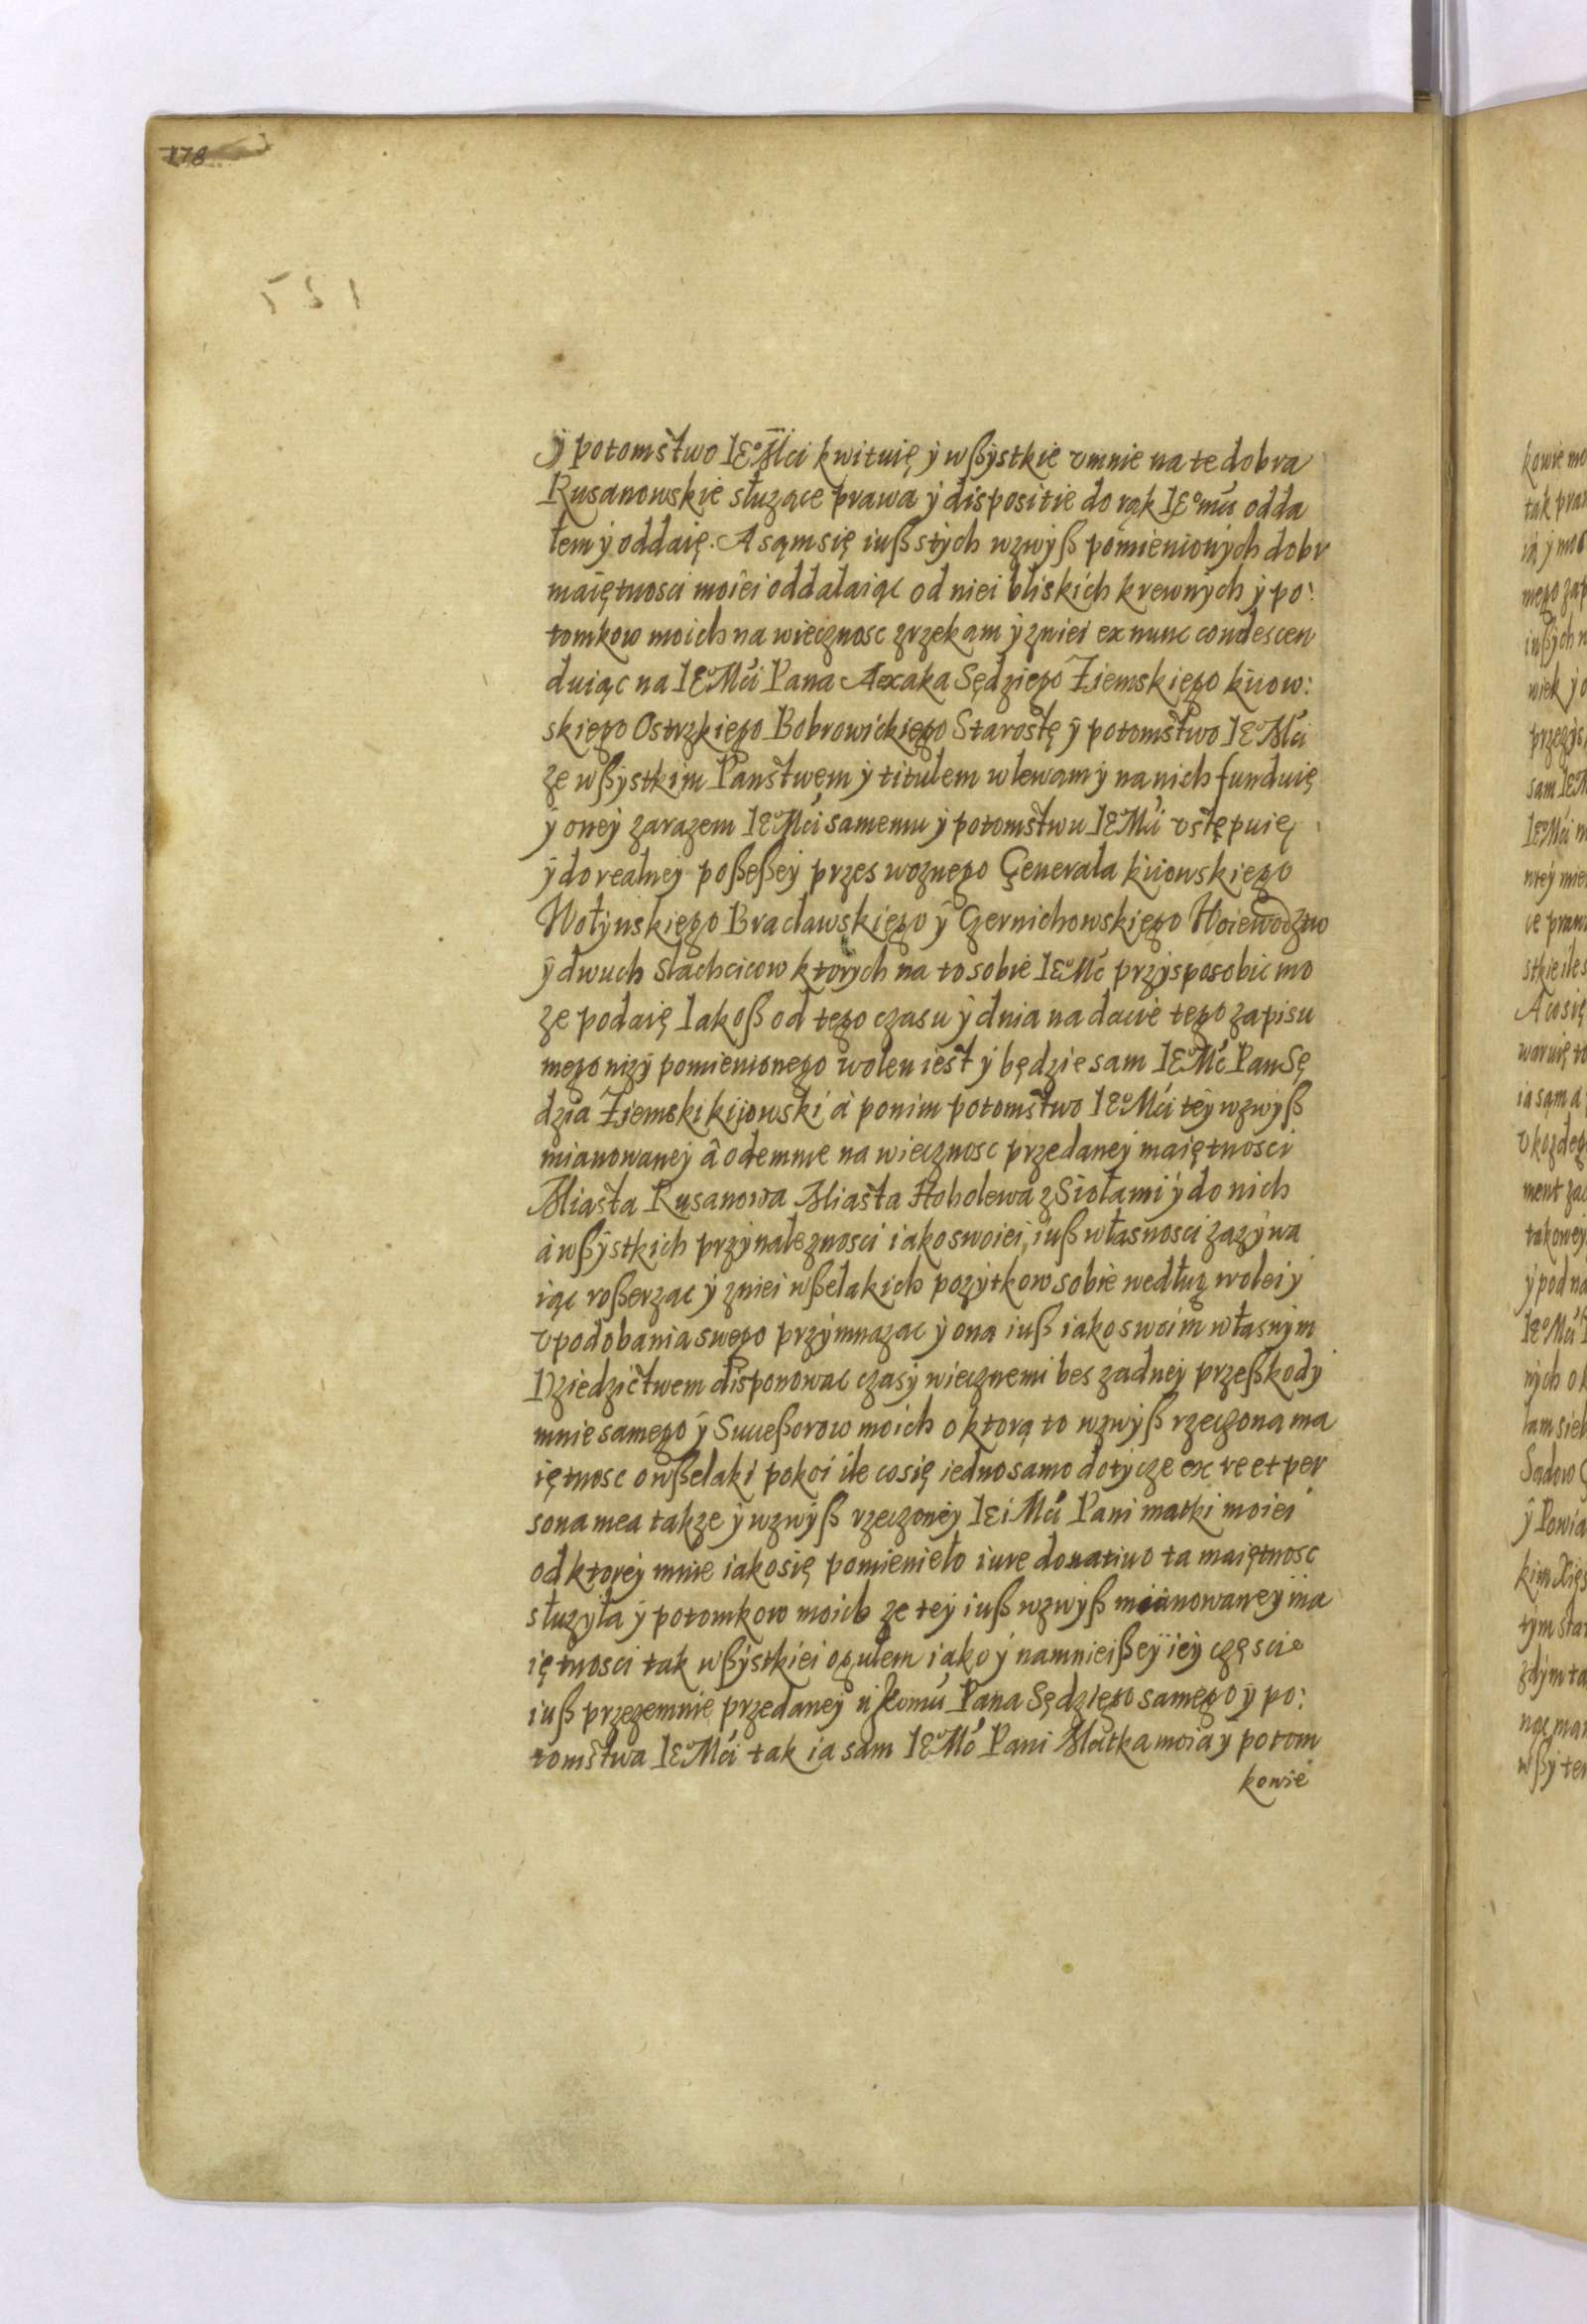 178
ÿ potomstwo IE° Mci kwituię ÿ wßÿstkie vmnie na te dobra
Rusanowskie słuzące prawa ÿ dispositie do rąk IE°mu odda
łem ÿ oddaię. A sąm się iuß stÿch wzwÿß pomienionÿch dobr
maiętnosci moiei oddalaiąc od niei bliskich krewnÿch ÿ po:
tomkow moich na wiecznosc zrzekam ÿ zniei ex nunc condescen
duiąc na IE° Mci Pana Axaka Sędziego Ziemskiego kiiow:
skiego Ostrzkiego Bobrowickiego Starostę ÿ potomstwo IE° Mci
ze wßÿstkim Panstwem ÿ titulem wlewam ÿ na nich funduię
ÿ oneÿ zarazem IE° Mci samemu ÿ potomstwu IE° Mci vstępuię
ÿ do realneÿ poßeßeÿ przes woznego Generala kiiowskiego
Wołÿnskiego Bracławskiego ÿ Czernichowskiego Woiewodztwo
ÿ dwuch slachcicow ktorÿch na to sobie IE° Mc przÿsposobic mo
ze podaię Iakoß od tego czasu ÿ dnia na dacie tego zapisu
mego nizÿ pomienionego wolen iest ÿ będzie sam IE° Mc Pan Sę
dzia Ziemski kiiowski a ponim potomstwo IE° Mci teÿ wzwÿß
mianowaneÿ a odemnie na wiecznosc przedaneÿ maiętnosci
Miasta Rusanowa Miasta Hoholewa z Siołami ÿ do nich
a wßÿstkich przÿnaleznosci iako swoiei iuß własnosci zazÿwa
iąc roßerzac ÿ zniei wßelakich pozÿtkow sobie według wolei ÿ
vpodobania swego przÿmnazac ÿ ona iuß iako swoim własnÿm
Dziedzictwem disponowac czasÿ wiecznemi bes zadneÿ przeßkodÿ
mnie samego ÿ Succeßorow moich o ktorą to wzwÿß rzeczona ma
iętnosc o wßelaki pokoi ile co się iedno samo dotÿcze ex re et per
sona mea takze ÿ wzwÿß rzeczoneÿ IEi Mci Pani matki moiei
od ktoreÿ mnie iako się pomienieło iure donatiuo ta maiętnosc
słuzÿła ÿ potomkow moich ze teÿ iuß wzwÿß mianowaneÿ ma
iętnosci tak wßÿstkiei ogułem iako ÿ namnieißeÿ ieÿ częscie
iuß przezemnie przedaneÿ Pana Sędziego samego ÿ po:
tomstwa IE° Mci tak ia sam IE° Mc Pani Matka moia y potom
kowie